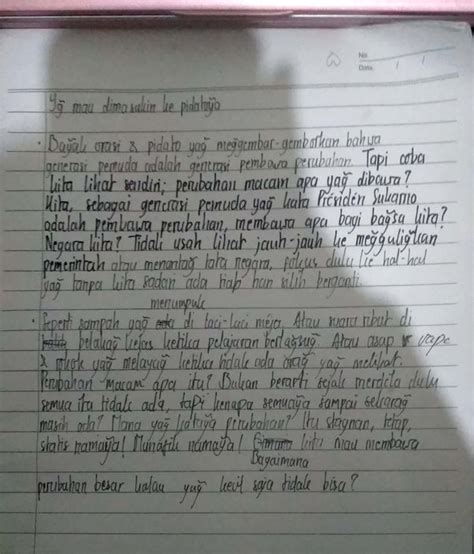 No.
Date.
Yğ mau dimasukin ke pidatoya
• Bayak orasi & pidato yağ meğgembar-gemborkan bahwa
generasi pemuda adalah generasi pembawa perubahan. Tapi coba
kita lihat sendiri; perubahan macam apa yağ dibawa?
Kita, sebagai generasi pemuda yağ kata Presiden Sukarno
adalah pembawa perubahan, membawa apa bagi bağsa kita?
Negara kita? Tidak usah lihat jauh-jauh ke meğguliğkan
pemerintah atau menantağ tata negara, fokus dulu ke hal-hal
yağ tanpa kita sadari ada tiap hari silih berganti.
menumpuk
• Seperti sampah yağ di laci-laci meja. Atau suara ribut di
belakağ kelas ketika pelajaran berlağsuğ. Atau asap vape
& rokok yağ melayağ ketika tidak ada orağ yağ melihat.
Perubahan macam apa itu? Bukan berarti sejak merdeka dulu
semua itu tidak ada, tapi kenapa semuaya sampai sekarağ
masih ada? Mana yağ kataya perubahan? Itu stagnan, tetap,
statis namaya! Munafik namaya! kita mau membawa
Bagaimana
perubahan besar kalau yağ kecil saja tidak bisa?